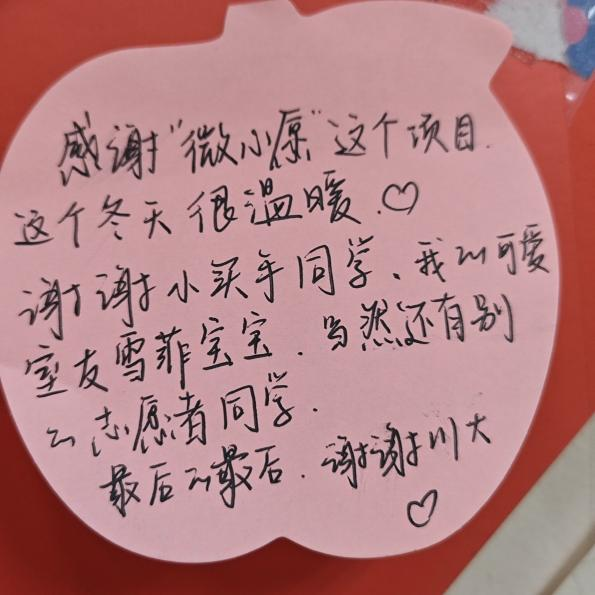 感谢“微小愿”这个项目.
这个冬天很温暖.♡
谢谢小买手同学、我的可爱
室友雪菲宝宝.当然还有别
的志愿者同学.
最后的最后.谢谢川大
♡